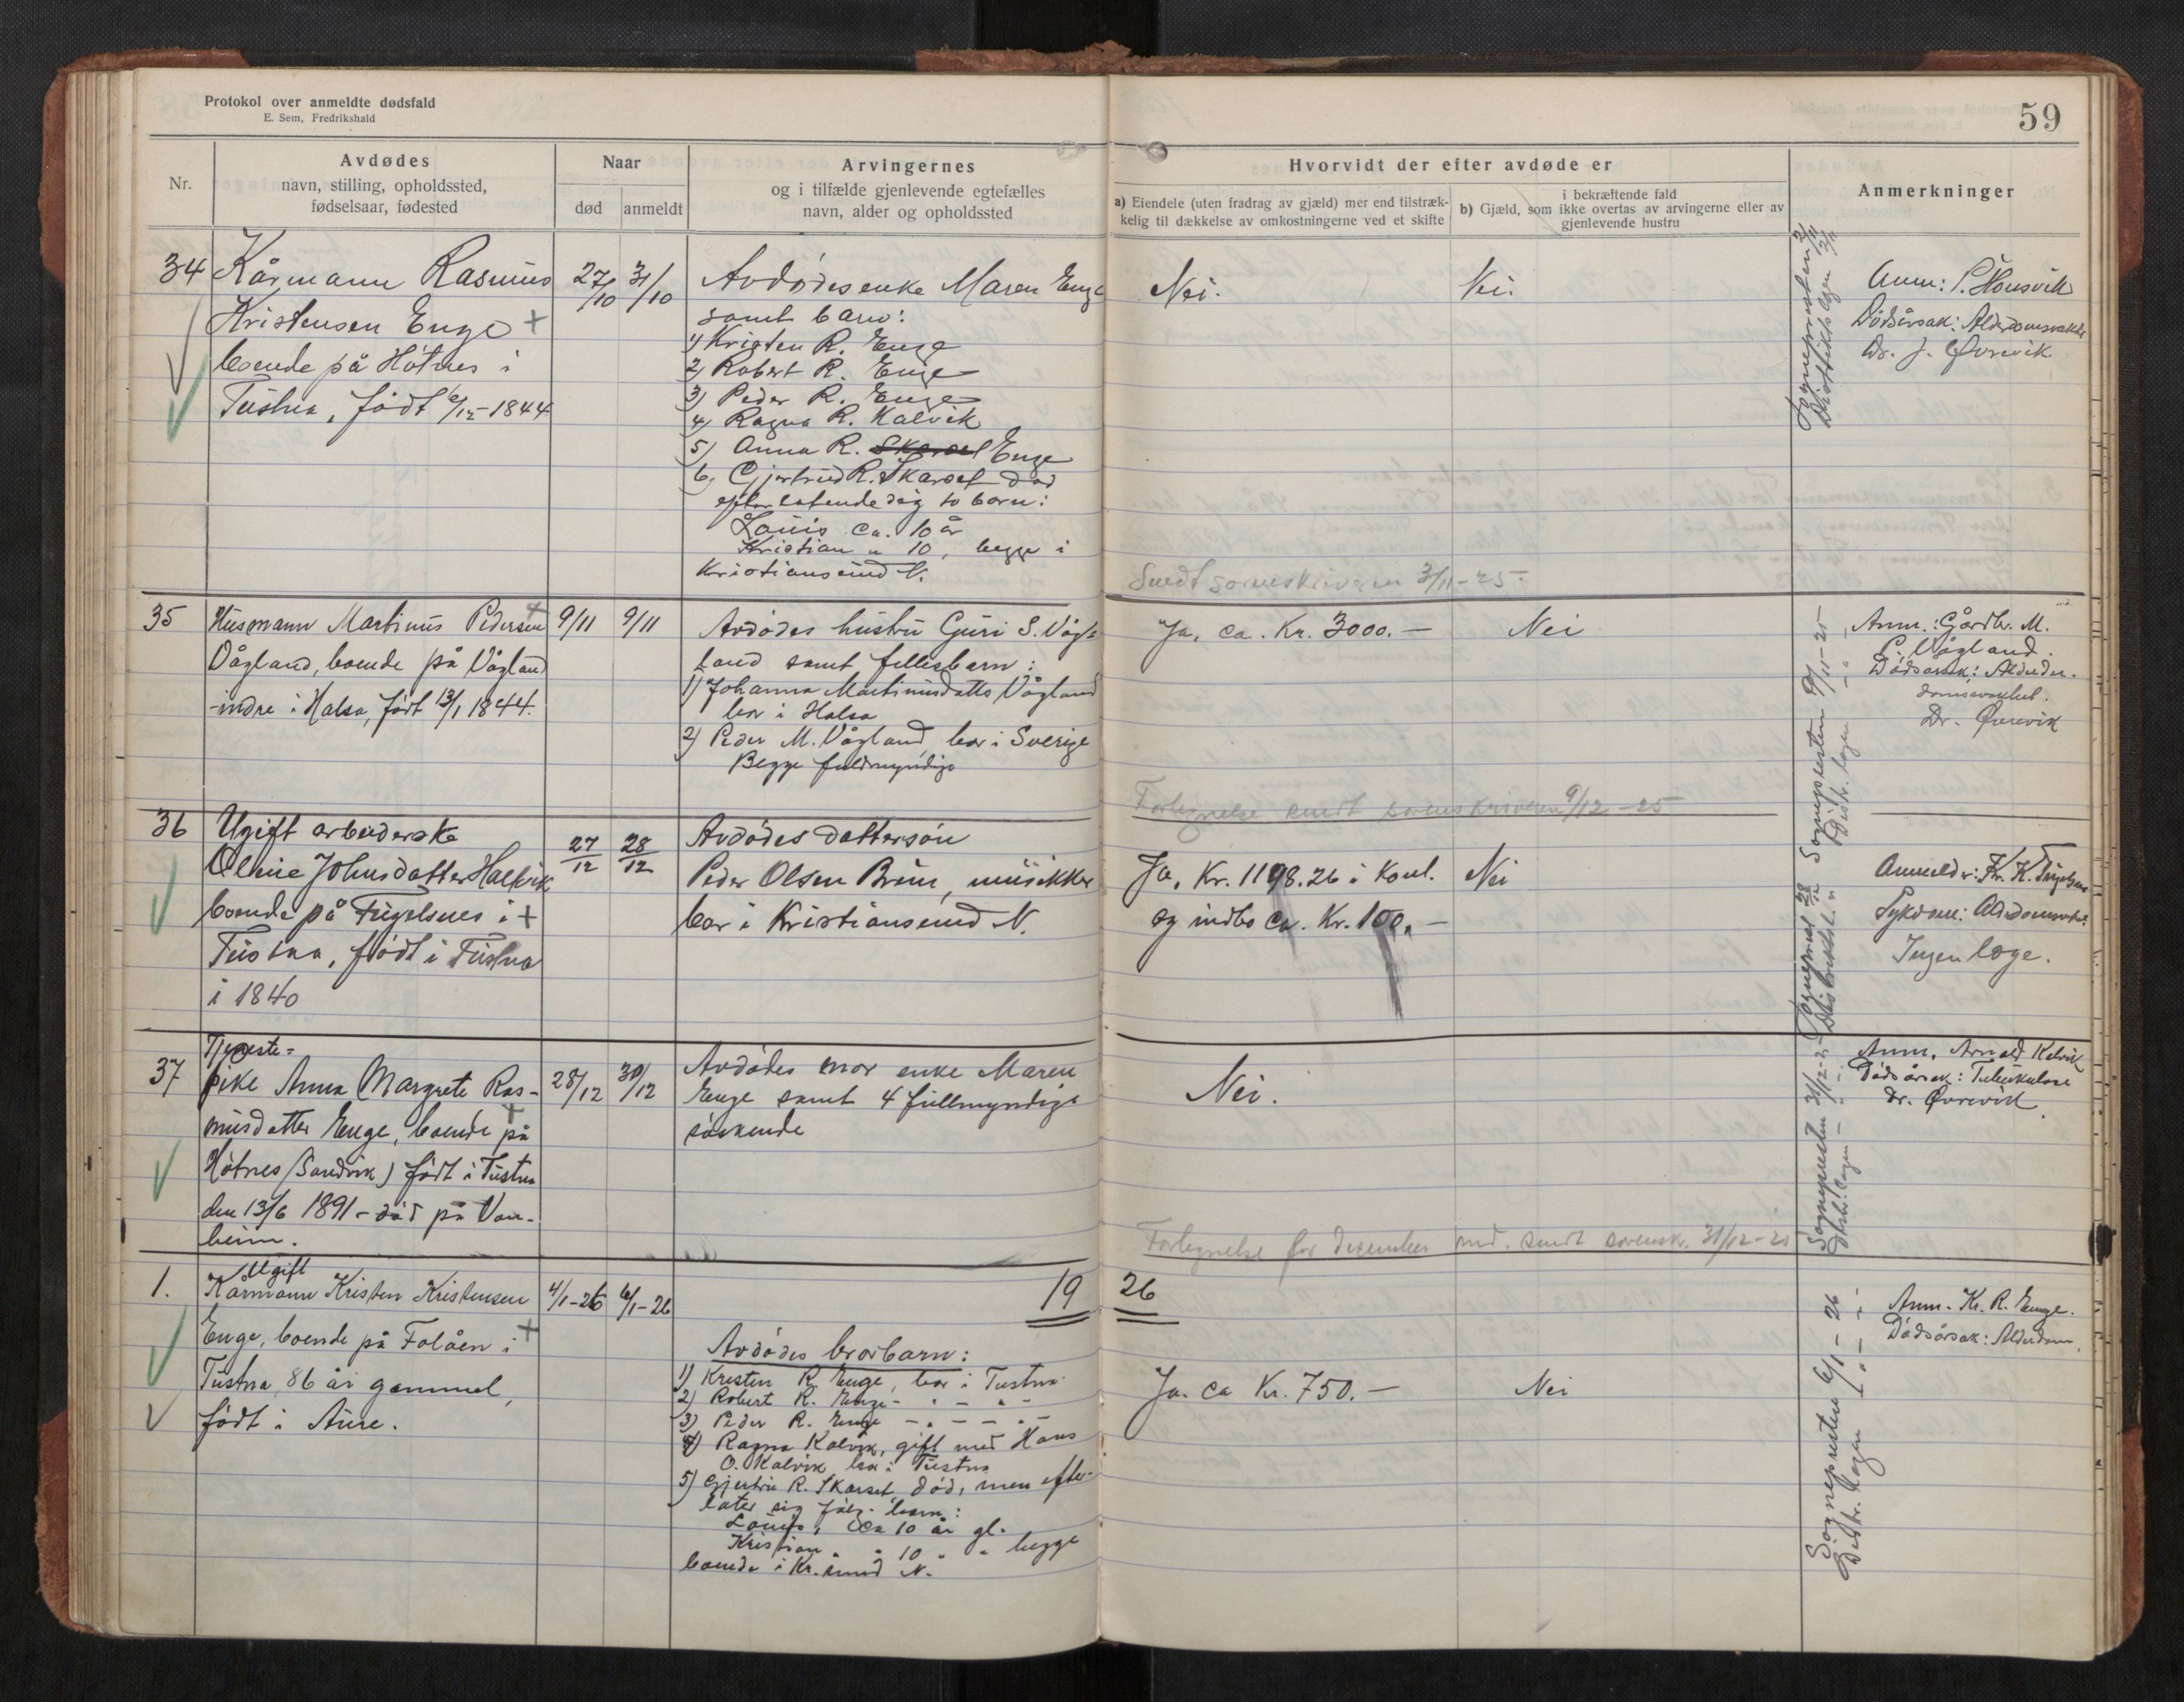 Protokol over anmeldte dødsfald
E. Sem, Fredrikshald
59
Nr.
Avdødes
navn, stilling, opholdssted,
fødselsaar, fødested
Naar
død
anmeldt
Arvingernes
og i tilfælde gjenlevende egtefælles
navn, alder og opholdssted
Hvorvidt der efter avdøde er
a) Eiendele (uten fradrag av gjæld) mer end tilstræk-
kelig til dækkelse av omkostningerne ved et skifte
i bekræftende fald
b) Gjæld, som ikke overtas av arvingerne eller av
gjenlevende hustru
Anmerkninger
34
Kårmann Rasmus
Kristensen Enge +
boende på Hötnes i
Tustna, födt 6/12-1844
27/10
31/10
Avdödes enke Maren Enge
samt barn:
1) Kristen R. Enge
2) Robert R. Enge
3) Peder R. Enge
4) Ragna R. Kalvik
5) Anna R. Skarset Enge
6, Gjertrud R. Skarset död
efterlatende sig to barn:
Louis ca. 10 år
Kristian " 10, begge i
Kristiansund N.
Nei.
Nei.
Sendt sorenskriveren 3/11-25.
Sognepresten 2/11
Distriktslægen 2/11
Anm: P. Hönsvik
Dödsårsak: Alderdomsvakhet
Dr. J. Øvrevik
35
Husmann Martinus Pedersen +
Vågland, boende på Vågland
-indre i Halsa, födt 13/1 1844.
9/11
9/11
Avdödes hustru Guri S. Våg-
land samt fellesbarn:
1) Johanna Martinusdatter Vågland
bor i Halsa
2) Peder M. Vågland, bor i Sverige
Begge fuldmyndige
Ja, ca. Kr. 3000.—
Nei
Fortegnelse sendt sorenskriveren 9/12-25
Sognepresten 9/11-25
Distr. lægen — " —
Anm.: Gårdbr. M.
P. Vågland.
Dödsårsak: Alder-
domsvakhet.
Dr. Øvrevik
36
Ugift arbeiderske
Oline Johnsdatter Halsvik
boende på Fugelsnes i +
Tustna, födt i Tustna
i 1840
27/12
28/12
Avdödes dattersön
Peder Olsen Brun, musikker
bor i Kristiansund N.
Ja, Kr. 1198.26 i kont.
og indbo ca. Kr. 100.—
Nei
Sogneprest 28/12
Distriktsl. "
Anmelder: Kr. K. Fugelsnes
Sykdom: Alderdomsvakhet
Ingen læge.
37
Tjeneste-
pike Anna Margrete Ras-
musdatter Enge, boende på +
Hötnes (Sandvik) födt i Tustna
den 13/6 1891 - död på Von-
heim.
28/12
30/12
Avdödes mor enke Maren
Enge samt 4 fullmyndige
söskende
Nei.
Fortegnelse for december md. sendt sorenskr. 31/12-25
Sognepresten 31/12-25
Distr. lægen — " —
Anm. Arnold Kalvik
Dödsårsak: Tuberkulose
Dr. Øvrevik.
19 26
1.
Ugift
Kårmann Kristen Kristensen
Enge, boende på Folåen i +
Tustna, 86 år gammel,
födt i Aure.
4/1-26
6/1-26
Avdödes brorbarn:
1) Kristen R. Enge, bor i Tustna.
2) Robert R. Enge - " - " -
3) Peder R. Enge - " - - " -
4) Ragna Kalvik, gift med Hans
O. Kalvik bor i Tustna
5) Gjertru R. Skarset död, men efter-
later sig fölg. barn:
Louis, ca 10 år gl.
Kristian " " 10 " " begge
boende i Kr.sund N.
Ja. ca Kr. 750.—
Nei
Sognepresten 6/1-26
Distr. lægen — " —
Anm. Kr. R. Enge.
Dödsårsak: Alderdom.